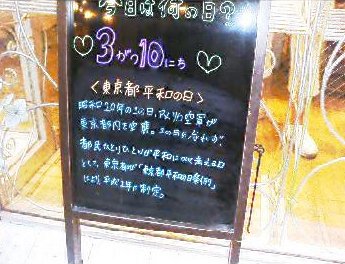 今日は何の日?
3がつ10にち
〈東京都平和の日〉
昭和20年のこの日、アメリカ空軍が
東京都内を空襲。この日を忘れず
都民ひとりひとりが平和について考える日
として、東京都が「東京都平和の日条例」
により、平成2年に制定。